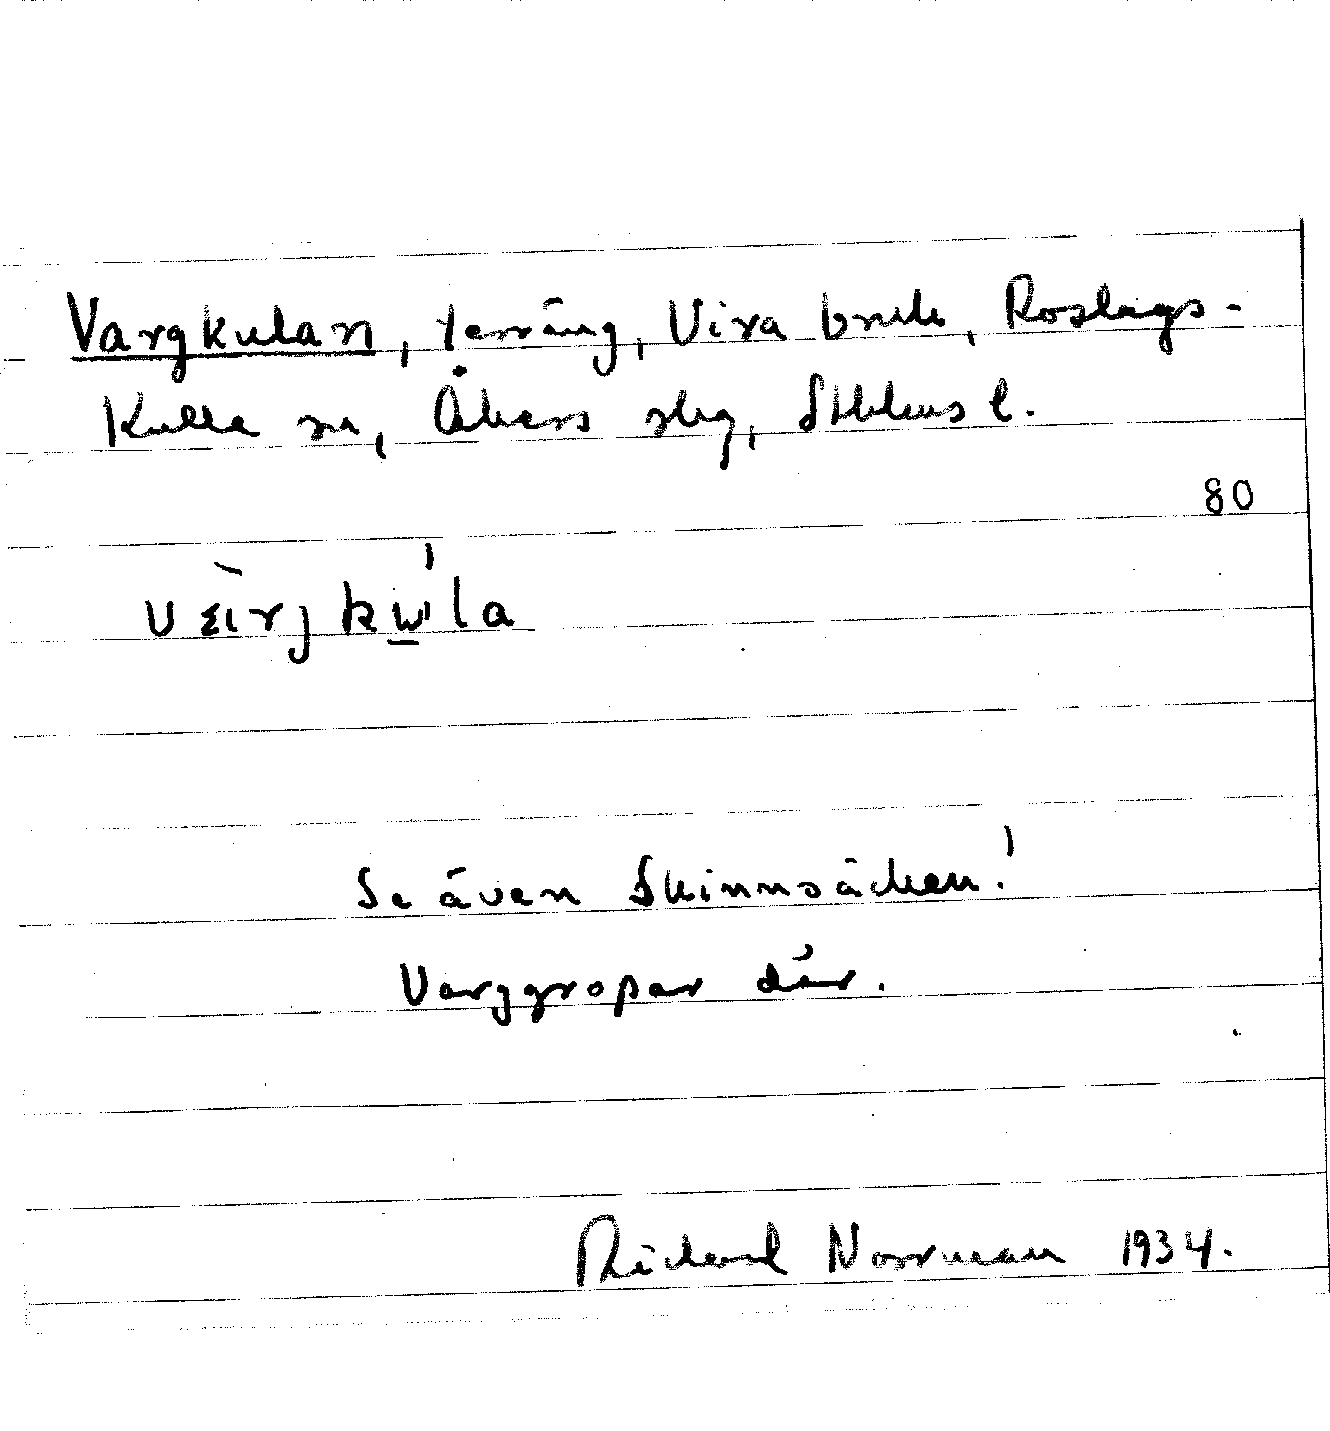 Vargkulan, terräng, Vira bruk, Roslags-
Kulla sn, Åkers skg, Sthlms l.
80
Se även Skinnsäcken!
Varggropar där.
Rickard Norrman 1934.